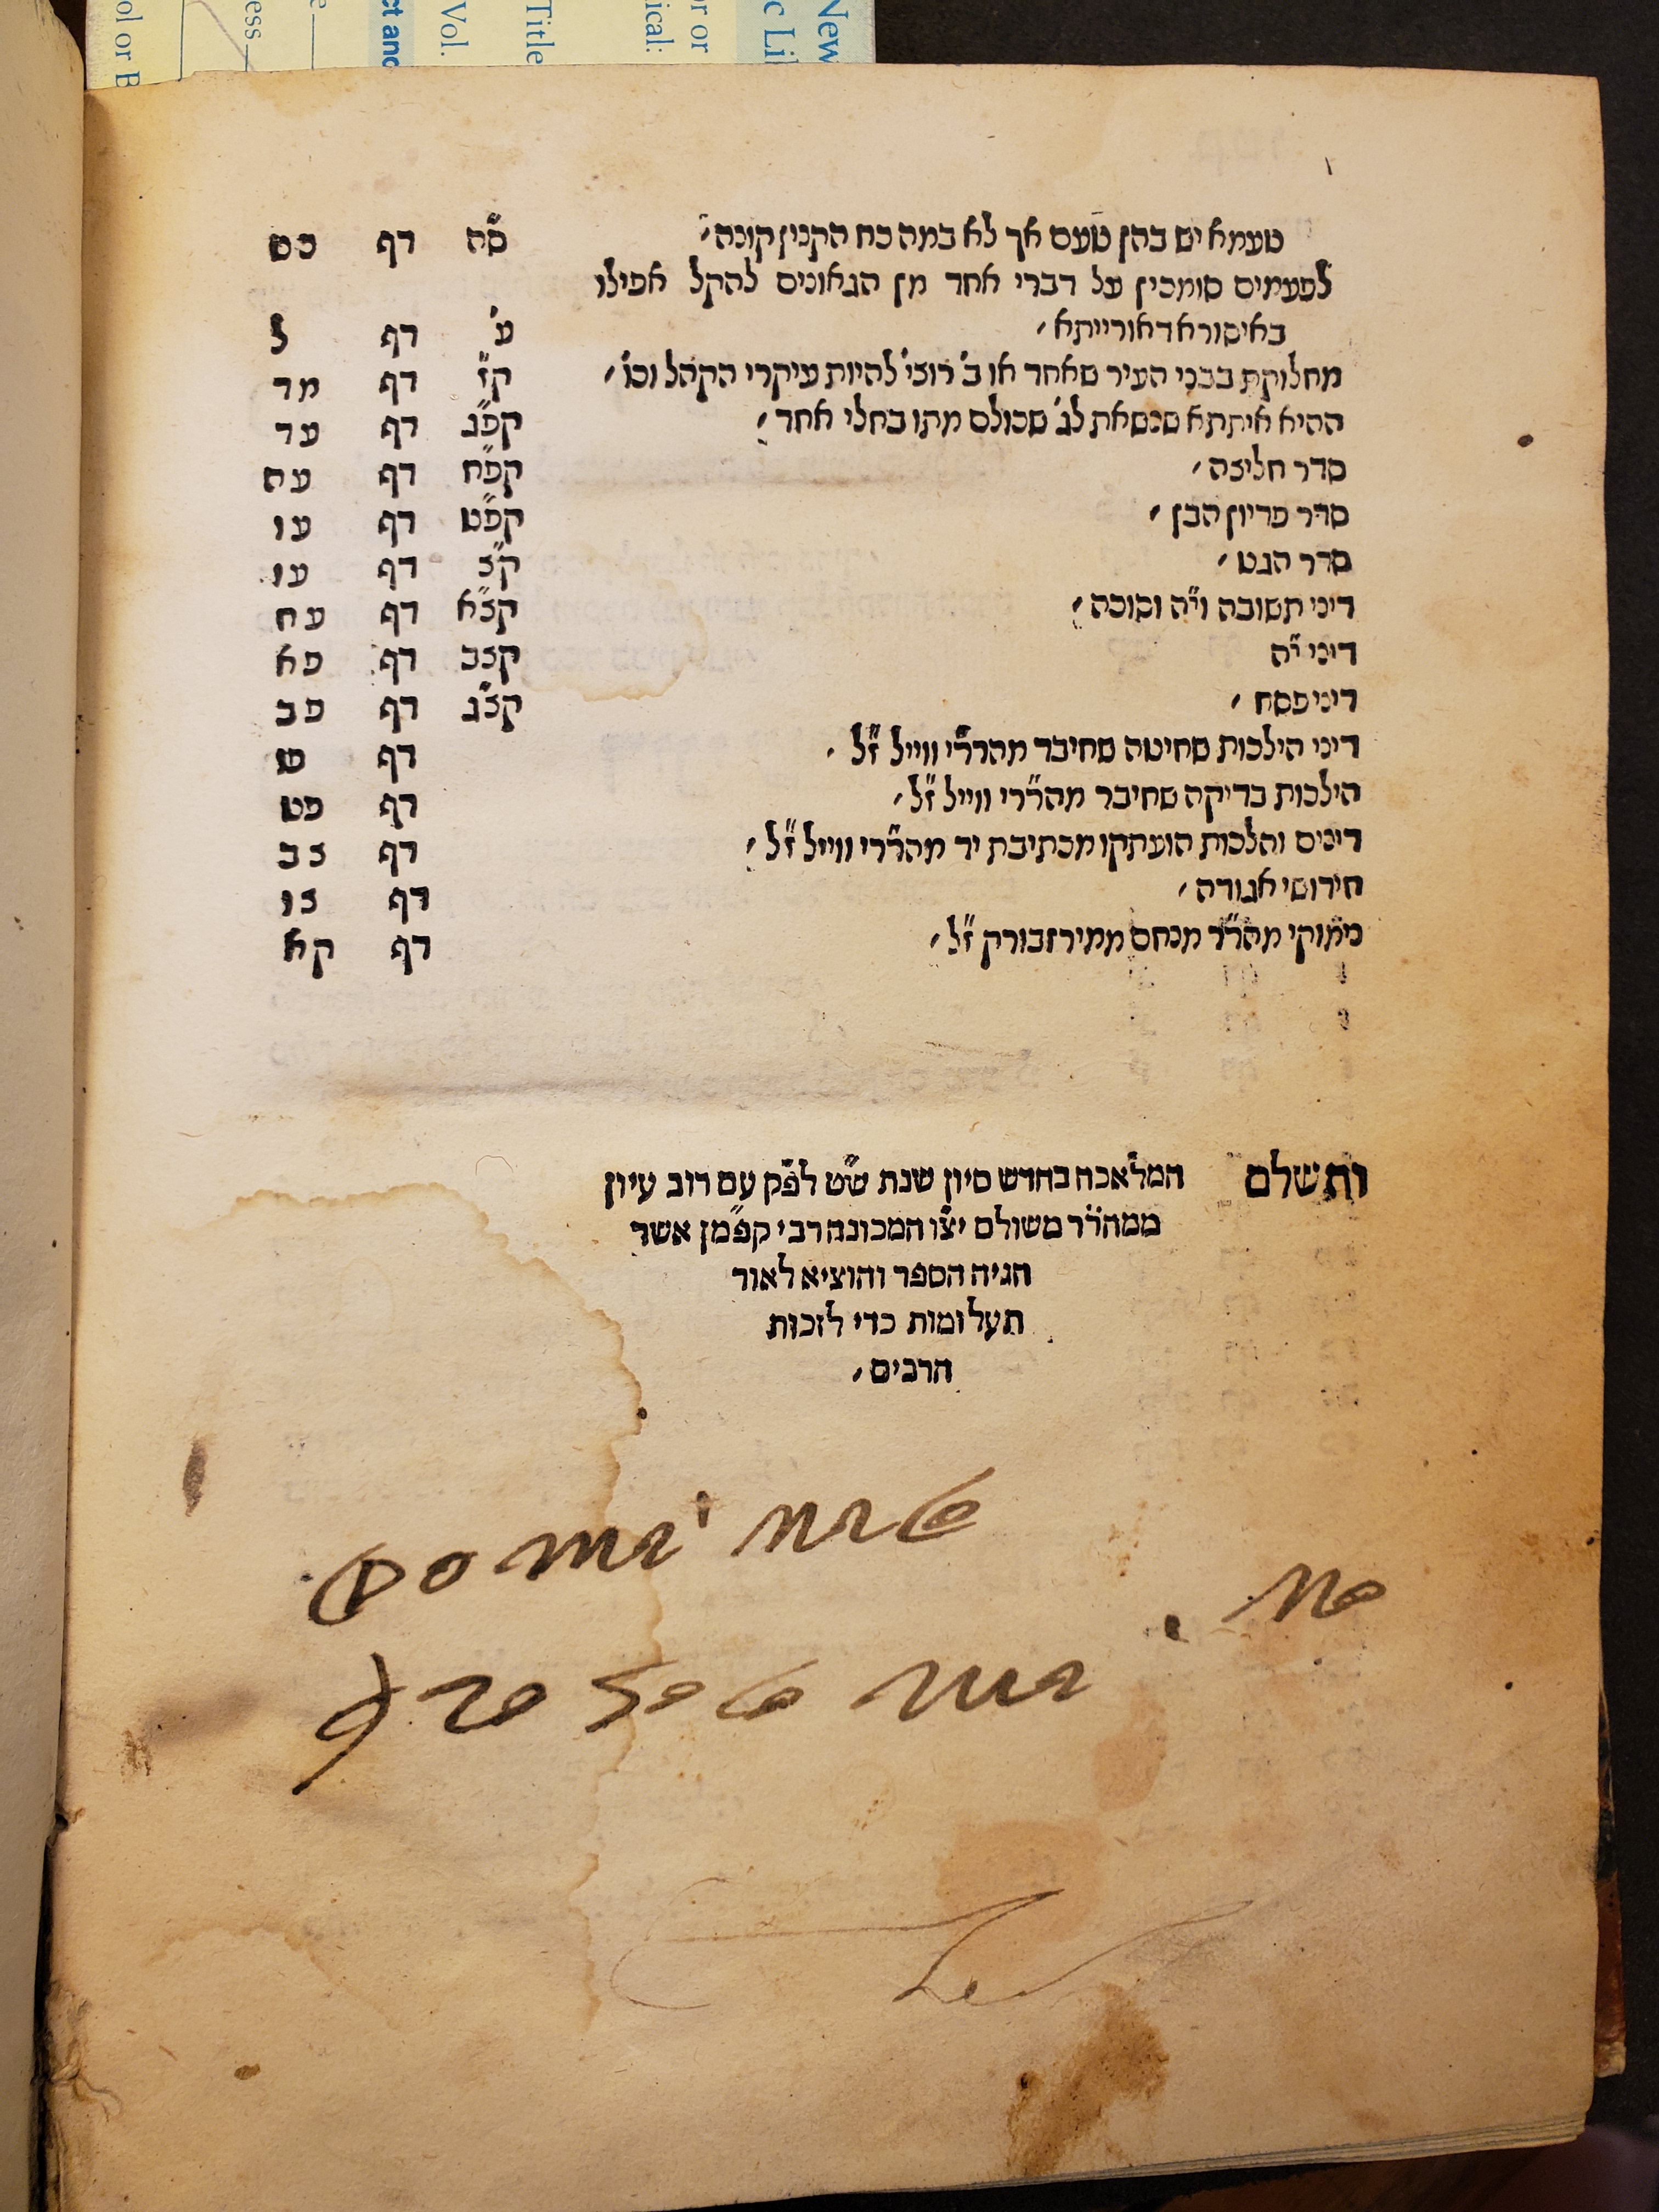 New
c Li
or or
ical:
Title
Vol.
ct and
e
ess
ol or B
טעמא יש בהן טעם אך לא במה כח הקנין קונה, ס״ח דף כט
לפעמים סומכין על דברי אחד מן הגאונים להקל אפילו
באיסורא דאורייתא, ע׳ דף ל
מחלוקת בבני העיר שאחד או ב׳ רוצי׳ להיות עיקרי הקהל וכו׳, ק״ז דף מד
ההיא איתתא שנשאת לג׳ שכולם מתו בחלי אחד, קפ״ג דף עד
סדר חליצה, קפ״ח דף עה
סדר פדיון הבן, קפ״ט דף עו
סדר הגט, ק״צ דף עו
דיני תשובה וי״ה וסוכה, קצ״א דף עח
דיני י״ה קצב דף פא
דיני פסח, קצ״ג דף פב
דיני הילכות שחיטה שחיבר מהרר״י ווייל ז״ל, דף ט
הילכות בדיקה שחיבר מהר״רי ווייל ז״ל, דף פט
דינים והלכות הועתקו מכתיבת יד מהר״רי ווייל ז״ל, דף צב
חידושי אגודה, דף צו
נימוקי מהר״ר מנחם ממירזבורק ז״ל, דף קא
ותשלם המלאכה בחדש סיון שנת ש״ט לפ״ק עם רוב עיון
ממהר״ר משולם יצ״ו המכונה רבי קפ״מן אשר
הגיה הספר והוציא לאור
תעלומות כדי לזכות
הרבים,